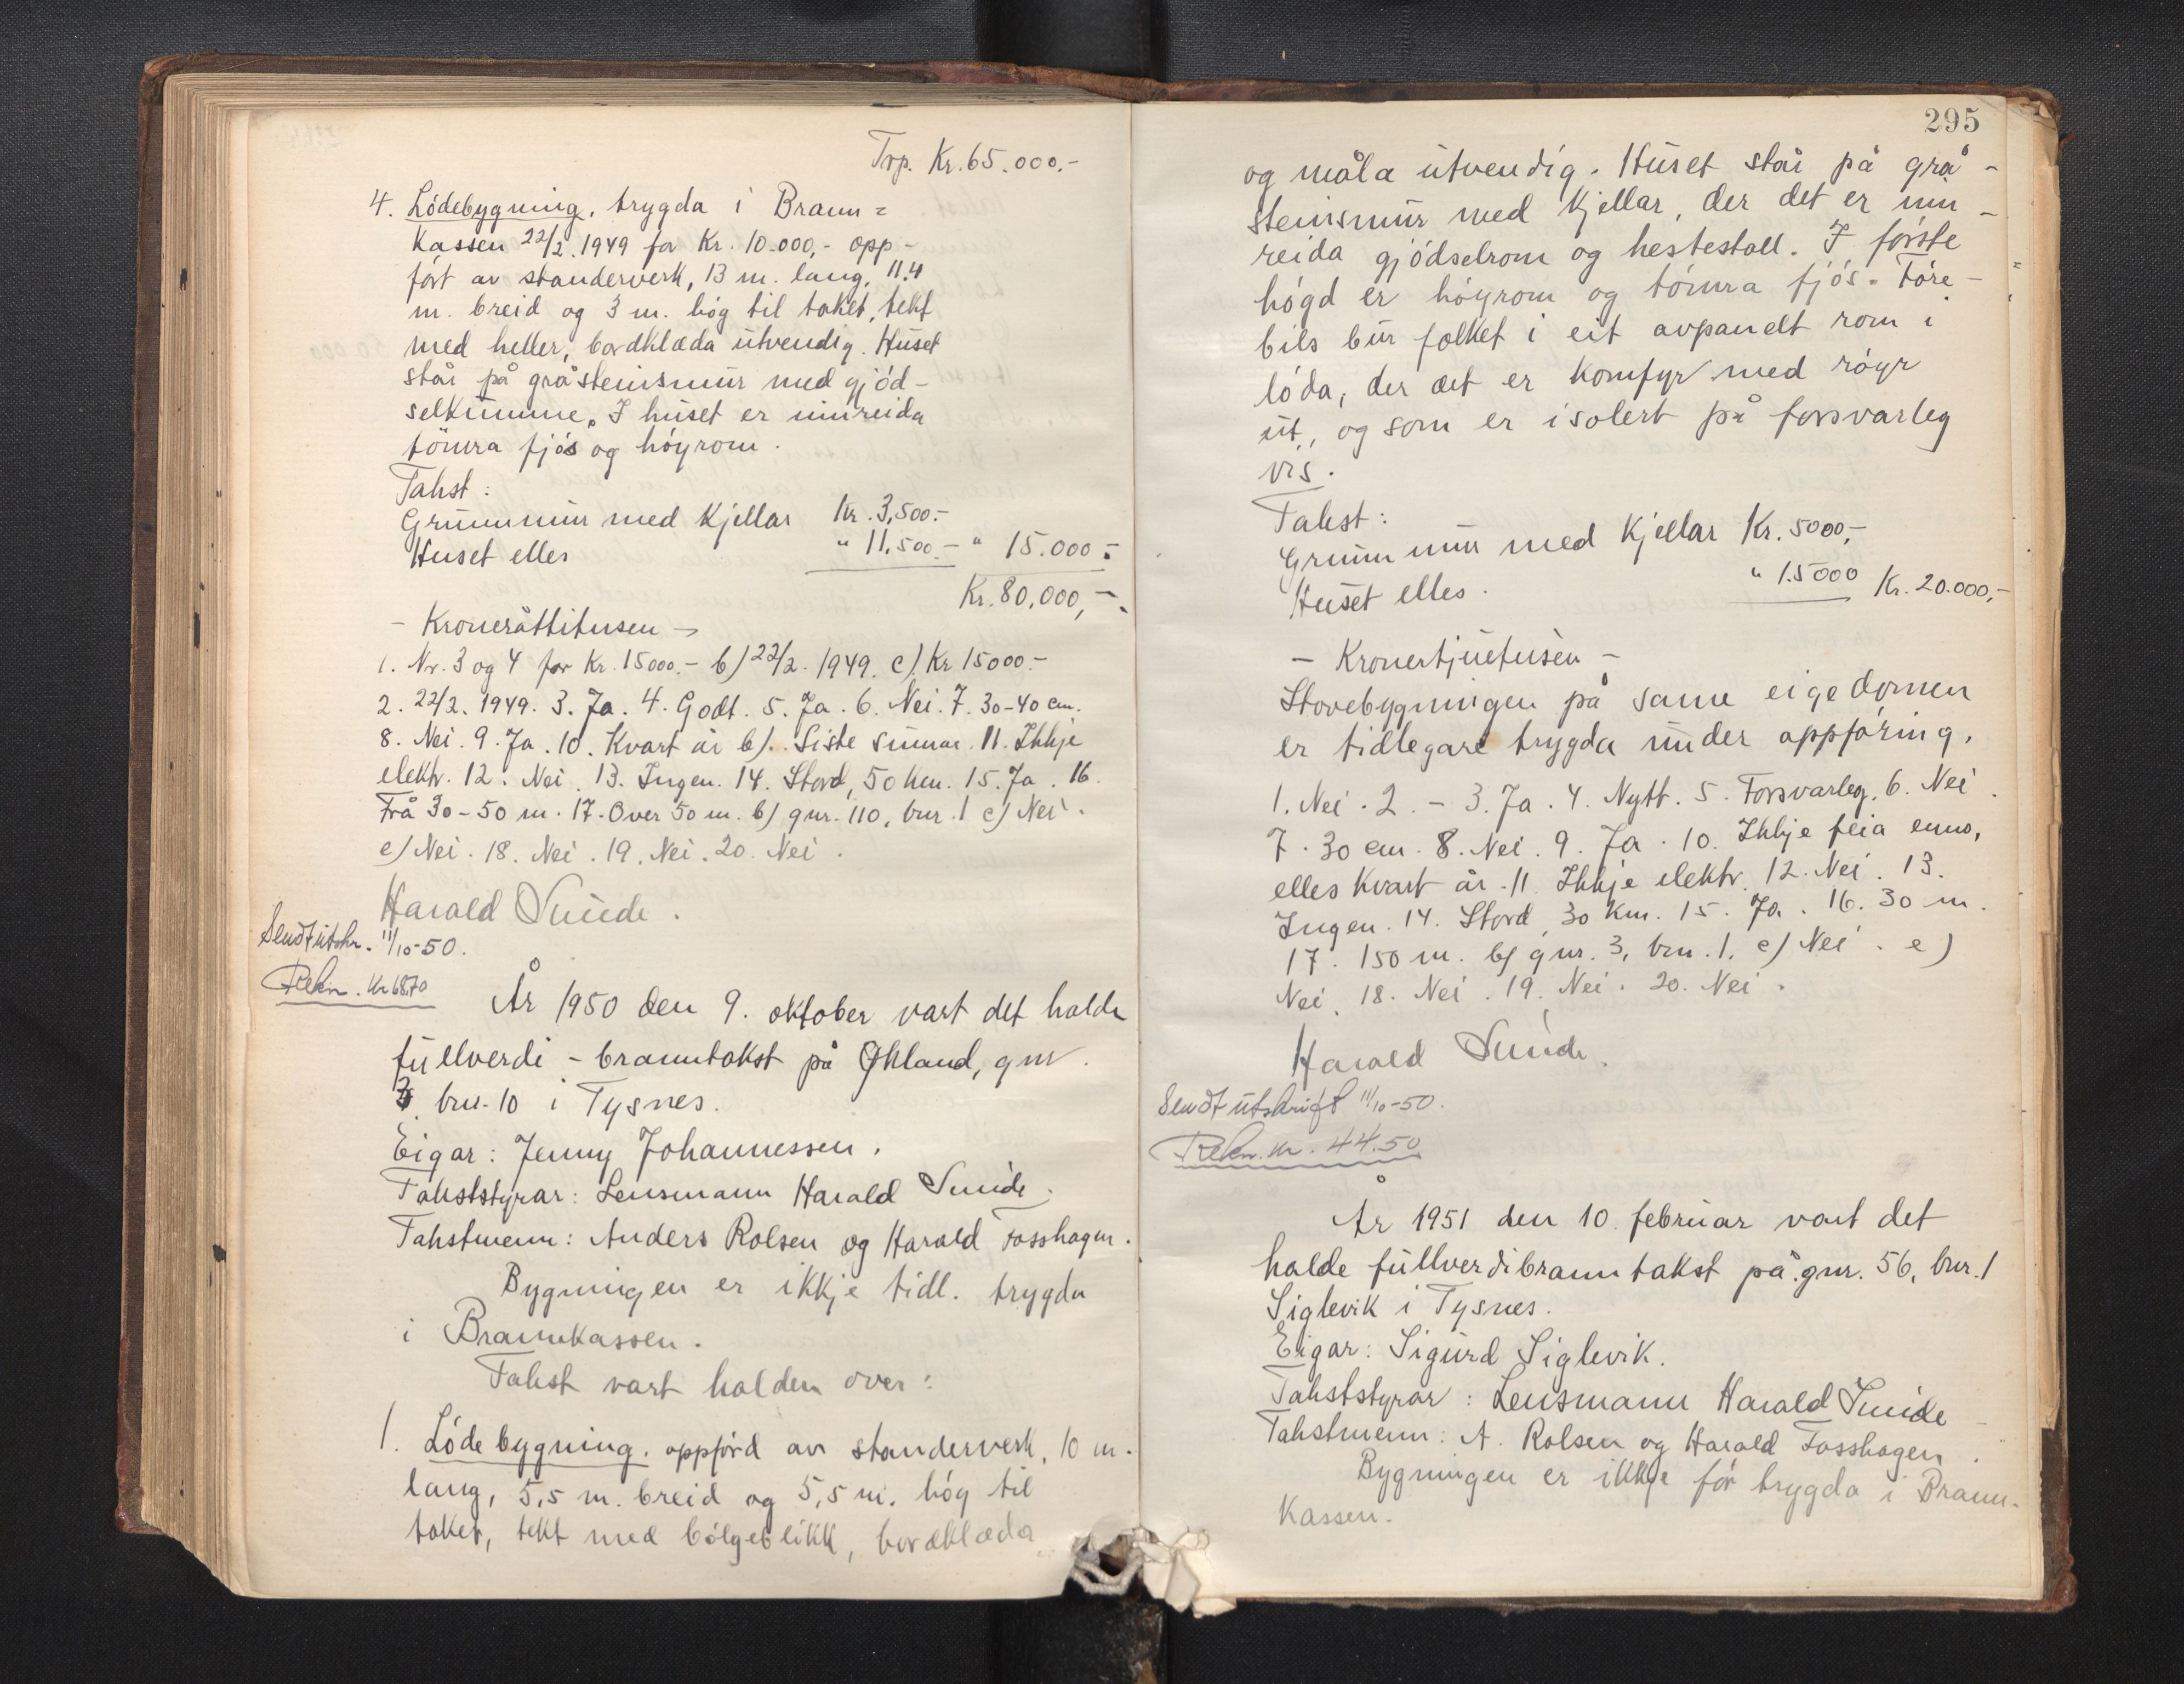 Trp. Kr. 65.000.-
4. Lödebygning, trygda i Brann=
kassen 22/2. 1949 for Kr. 10.000,- opp-
fört av standerverk, 13 m. lang, 11.4
m. breid og 3 m. hög til taket, tekt
med heller, bordklæda utvendig. Huset
står på gråsteinsmur med gjöd-
selkumme. I huset er innreida
tömra fjös og höyrom.
Takst:
Grunnmur med kjellar Kr. 3,500.-
Huset elles " 11.500.- " 15.000.-
Kr. 80.000,-
- Kroneråttitusen -
1. Nr. 3 og 4 for Kr. 15000.- b) 22/2. 1949. c) Kr 15000.-
2. 22/2. 1949. 3. Ja. 4. Godt. 5. Ja. 6. Nei. 7. 30-40 cm.
8. Nei. 9. Ja. 10. Kvart år b). Siste sumar. 11. Ikkje
elektr. 12. Nei. 13. Ingen. 14. Stord, 50 km. 15. Ja. 16.
Frå 30-50 m. 17. Over 50 m. b) gnr. 110, bnr. 1 c) Nei.
e) Nei. 18. Nei. 19. Nei. 20. Nei.
Harald Sunde.
Sendt utskr. 11/10-50.
Rekn. kr 68.70
År 1950 den 9. oktober vart det halde
fullverdi - branntakst på Økland, gnr.
3, bnr. 10 i Tysnes.
Eigar: Jenny Johannessen.
Takststyrar: Lensmann Harald Sunde.
Takstmenn: Anders Rolsen og Harald Fosshagen.
Bygningen er ikkje tidl. trygda
i Brannkassen.
Takst vart halden over:
1. Lödebygning, oppförd av standerverk, 10 m.
lang, 5,5 m. breid og 5,5 m. hög til
taket, tekt med bölgeblikk, bordklæda
295
og måla utvendig. Huset står på grå-
steinsmur med kjellar, der det er inn-
reida gjödselrom og hestestall. I förste
högd er höyrom og tömra fjös. Före-
bils bur folket i eit avpanelt rom i
löda, der det er komfyr med röyr
ut, og som er isolert på forsvarleg
vis.
Takst:
Grunnmur med kjellar Kr. 5000,-
Huset elles. " 15000 Kr. 20.000,-
- Kronertjuetusen -
Stovebygningen på same eigedomen
er tidlegare trygda under oppföring.
1. Nei. 2. - 3. Ja. 4. Nytt. 5. Forsvarleg. 6. Nei.
7. 30 cm. 8. Nei. 9. Ja. 10. Ikkje feia enno,
elles kvart år. 11. Ikkje elektr. 12. Nei. 13.
Ingen. 14. Stord, 30 km. 15. Ja. 16. 30 m.
17. 150 m. b) gnr. 3, bnr. 1. c) Nei. e)
Nei. 18. Nei. 19. Nei. 20. Nei.
Harald Sunde.
Sendt utskrift 11/10-50.
Rekn. kr. 44.50
År 1951 den 10. februar vart det
halde fullverdibranntakst på gnr. 56, bnr. 1
Siglevik i Tysnes.
Eigar: Sigurd Siglevik.
Takststyrar: Lensmann Harald Sunde
Takstmenn: A. Rolsen og Harald Fosshagen.
Bygningen er ikkje för trygda i Brann-
kassen.